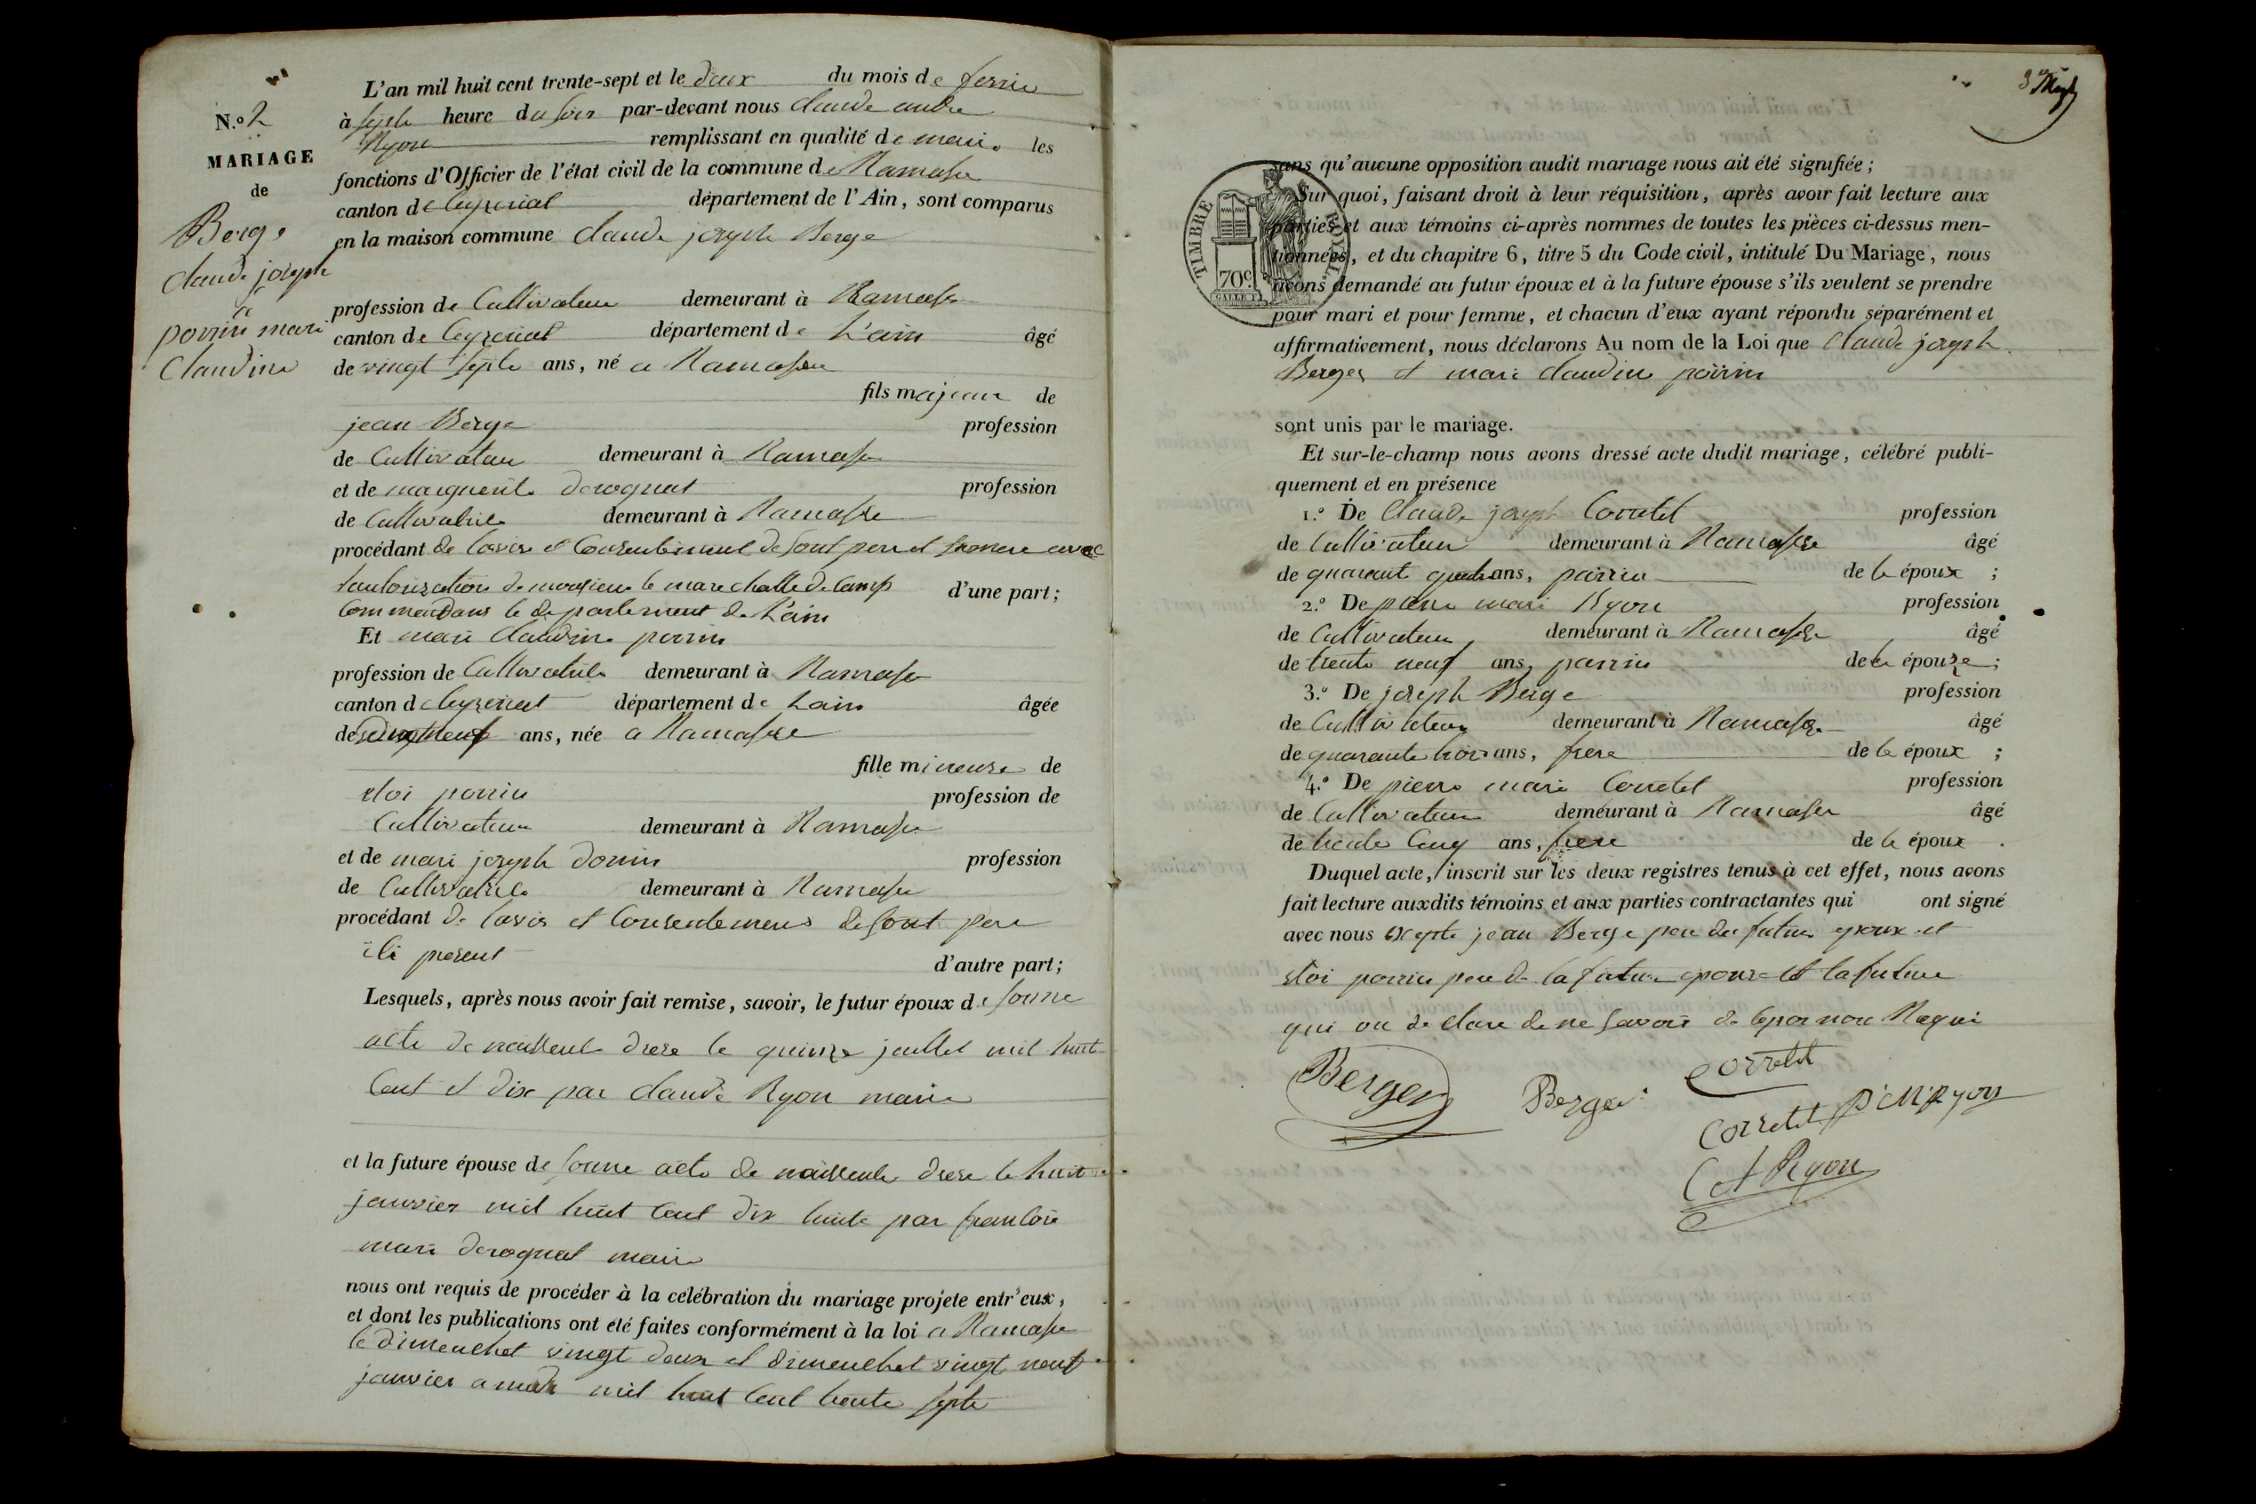 N.o 2
MARIAGE
de
Berge
claude joseph
et
perrin mari
claudine
L'an mil huit cent trente-sept et le deux du mois de fevrie
à septe heure du soir par-devant nous claude andre
Ryon remplissant en qualité de maire les
fonctions d'Officier de l'état civil de la commune de Ramasse
canton de Ceyzeriat département de l'Ain, sont comparus
en la maison commune claude joseph Berge
profession de Cultivateur demeurant à Ramasse
canton de Ceyzeriat département de L'ain âgé
de vingt septe ans, né a Ramasse
fils majeur de
jean Berge profession
de Cultivateur demeurant à Ramasse
et de marguerite derognat profession
de Cultivatrice demeurant à Ramasse
procédant de lavis et Consentement de sont per et sa mere avec
lautorisation de monsieur le marechalle de Camp d'une part;
Commendans le departement de L'ain
Et mari claudine perrin
profession de Cultivatrice demeurant à Ramasse
canton de Ceyzeriat département de Lain âgée
de dix neuf ans, née a Ramasse
fille mineure de
eloi perrin profession de
Cultivateur demeurant à Ramasse
et de mari joseph donin profession
de Cultivatrice demeurant à Ramasse
procédant de lavis et Consentemens de sont pere
ili present d'autre part;
Lesquels, après nous avoir fait remise, savoir, le futur époux de sonne
acte de naissence drese le quinze juillet mil huit
Cent et dix par claude Ryon maire
et la future épouse de sonne acte de naissence drese le huit
janvier mil huit Cent dix huite par francois
mari derognat maire
nous ont requis de procéder à la célébration du mariage projete entr'eux,
et dont les publications ont été faites conformément à la loi a Ramasse
le dimenchet vingt deux et dimenchet vingt neuf
janvier a midi mil huit Cent trente septe
3me
sans qu'aucune opposition audit mariage nous ait été signifiée;
TIMBRE ROYAL
70c.
Sur quoi, faisant droit à leur réquisition, après avoir fait lecture aux
parties et aux témoins ci-après nommes de toutes les pièces ci-dessus men-
tionnées, et du chapitre 6, titre 5 du Code civil, intitulé Du Mariage, nous
avons demandé au futur époux et à la future épouse s'ils veulent se prendre
pour mari et pour femme, et chacun d'eux ayant répondu séparément et
affirmativement, nous déclarons Au nom de la Loi que Claude joseph
Berger et mari claudine perrin
sont unis par le mariage.
Et sur-le-champ nous avons dressé acte dudit mariage, célébré publi-
quement et en présence
1.o De Claude joseph Corretel profession
de Cultivateur demeurant à Ramasse âgé
de quarante quatre ans, parrin de le époux ;
2.o De pierre mari Ryon profession
de Cultivateur demeurant à Ramasse âgé
de trente neuf ans, parrin de le épouze;
3.o De joseph Berge profession
de Cultivateur demeurant à Ramasse âgé
de quarante trois ans, frere de le époux ;
4.o De pierre mari Corretel profession
de Cultivateur demeurant à Ramasse âgé
de trente Cinq ans, frere de le époux .
Duquel acte, inscrit sur les deux registres tenus à cet effet, nous avons
fait lecture auxdits témoins et aux parties contractantes qui ont signé
avec nous exepte jean Berge pere du futur epoux et
eloi perrin pere de la future epouse et la future
qui on de clare de ne savoir
Berger
Berger
Corretel
Corretel
P. M. Ryon
C A Ryon